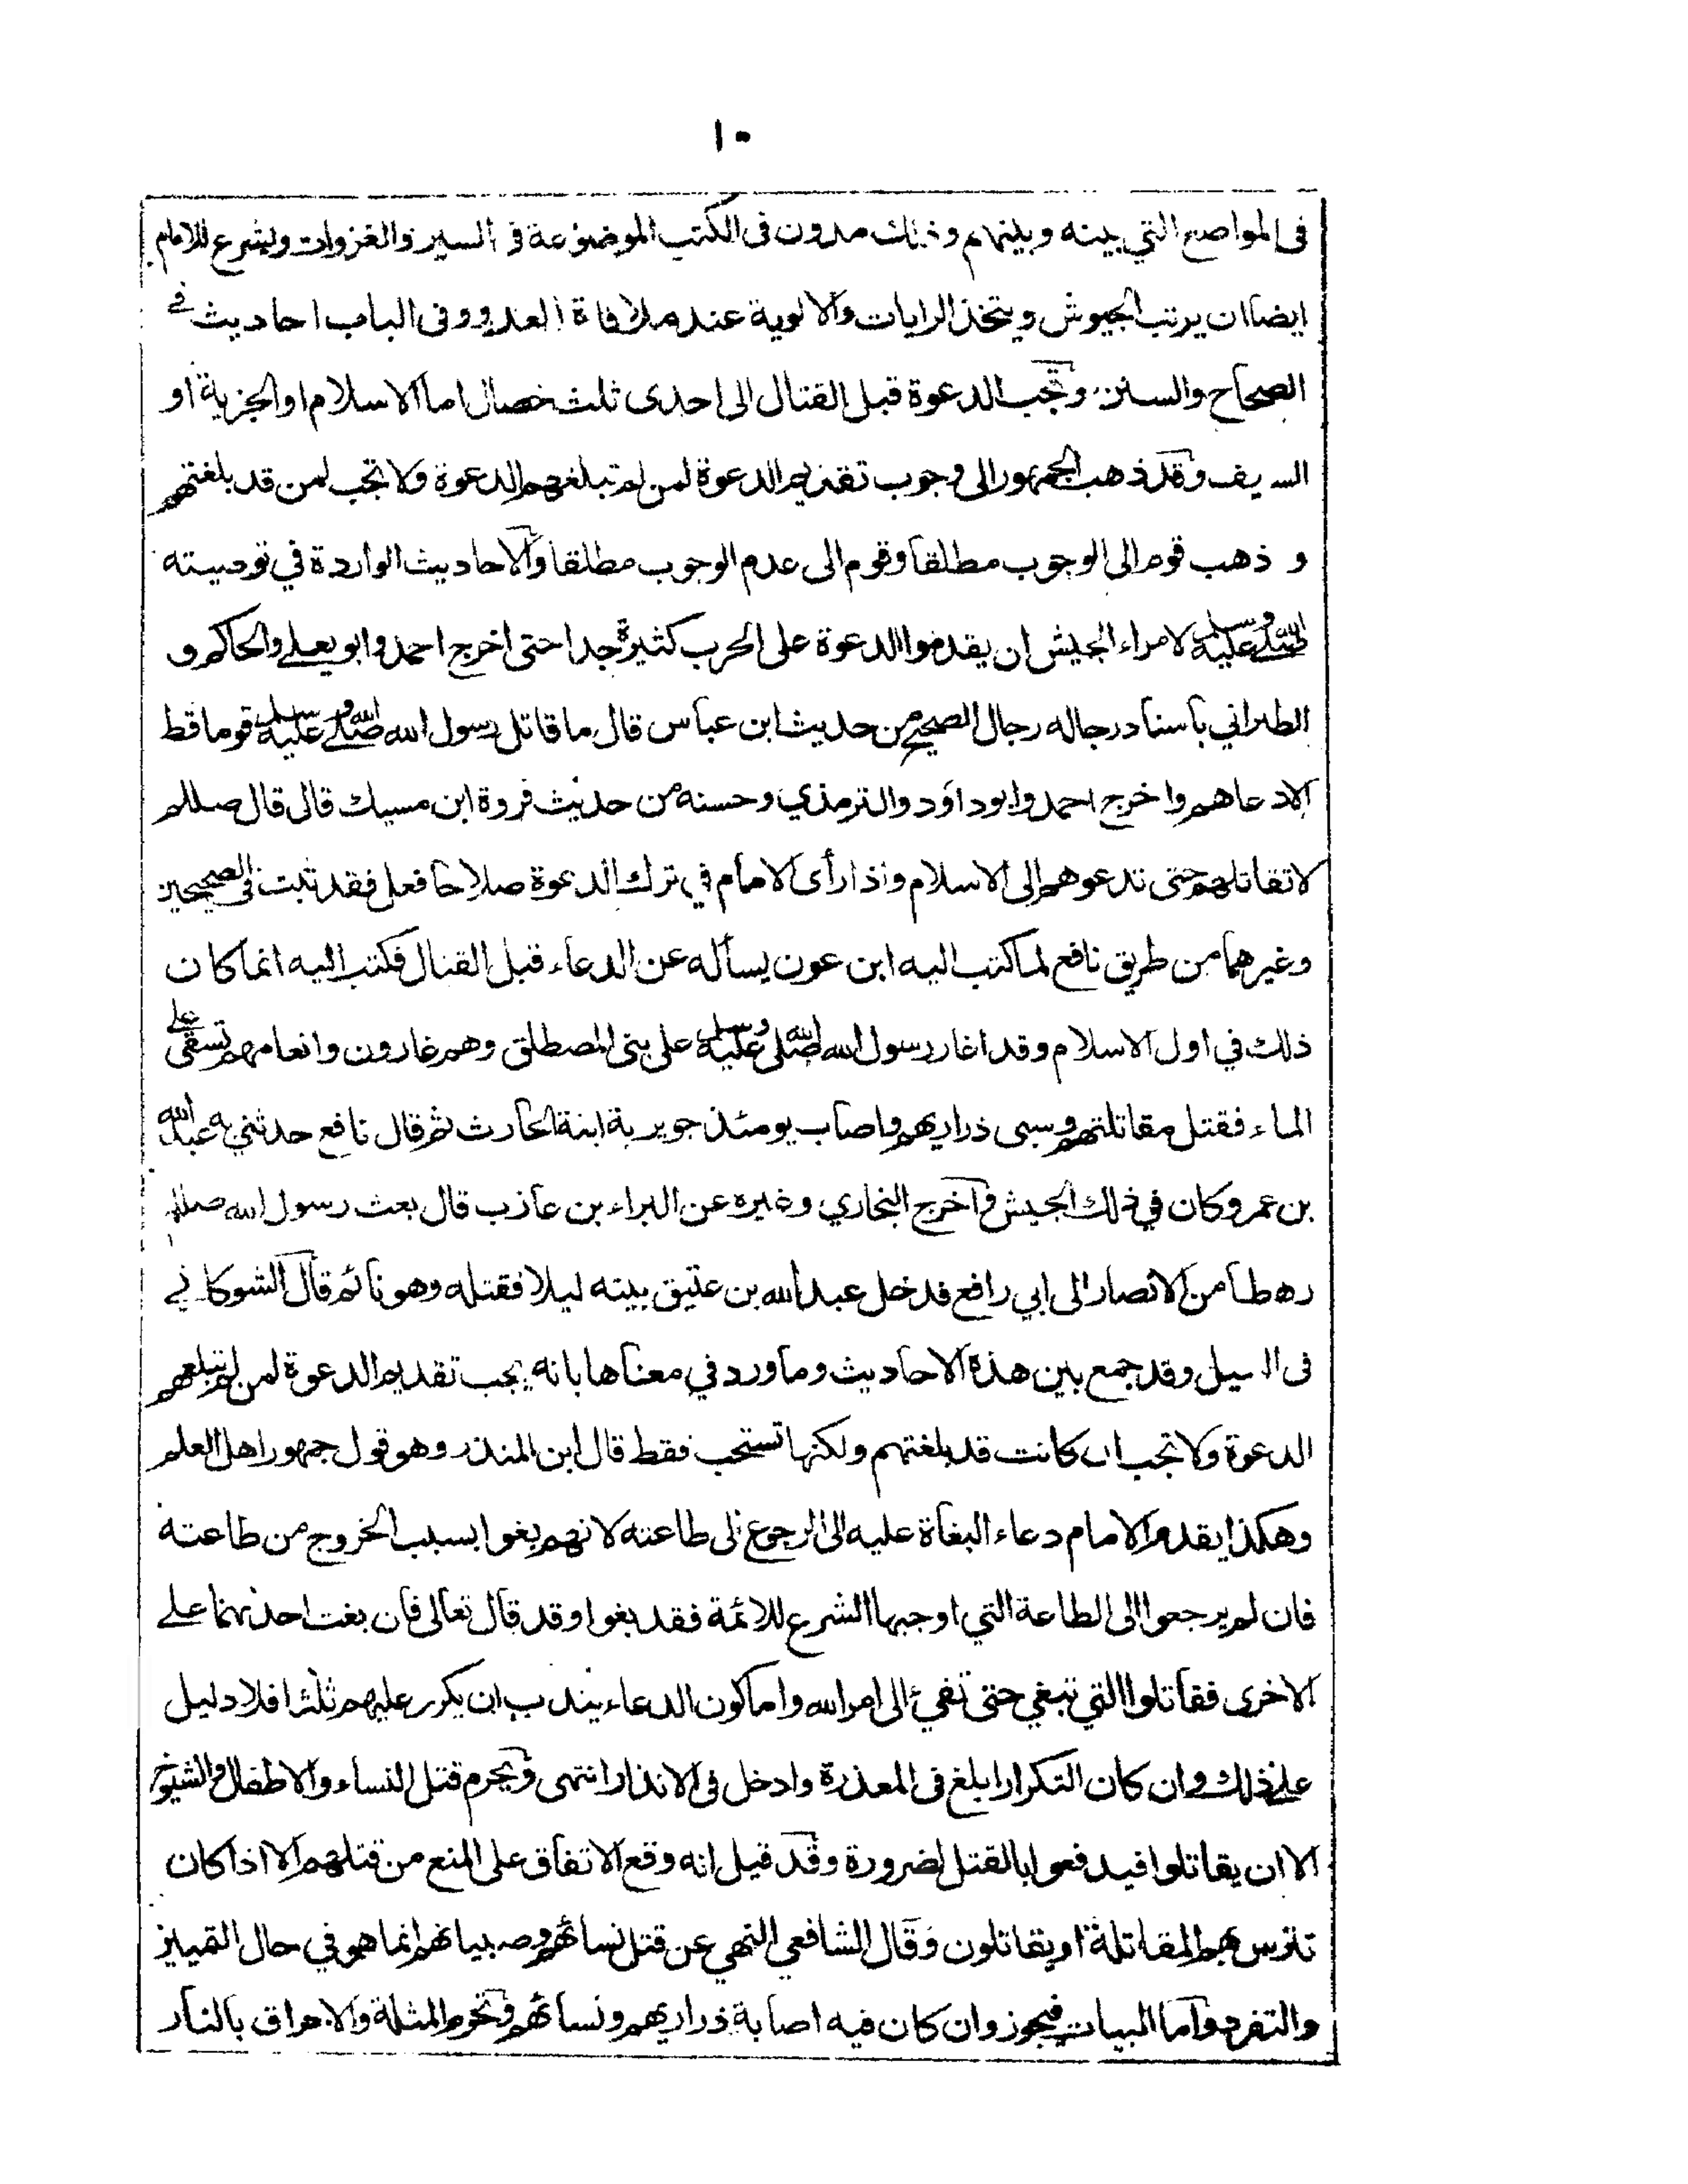 ١٠
فى المواضع التي بينه وبينهم وذلك مدون فى الكتب الموضوعة فى السير والغزوات ويشرع للامام
ايضا ان يرتب الجيوش ويتخذ الرايات والالوية عند ملاقاة العدو وفى الباب احاديث في
الصحاح والسنن وتجب الدعوة قبل القتال الى احدى ثلث خصال اما الاسلام او الجزية او
السيف وقد ذهب الجمهور الى وجوب تقديم الدعوة لمن لم تبلغهم الدعوة ولا تجب لمن قد بلغتهم
و ذهب قوم الى الوجوب مطلقا وقوم الى عدم الوجوب مطلقا والاحاديث الواردة في توصيته
صلى الله عليه وسلم لامراء الجيش ان يقدموا الدعوة على الحرب كثيرة جدا حتى اخرج احمد وابو يعلے والحاكم و
الطبراني بأسناد رجاله رجال الصحيح من حديث ابن عباس قال ما قاتل رسول الله صلى الله عليه وسلم قوما قط
الا دعاهم واخرج احمد وابو داؤد والترمذي وحسنه من حديث فروة ابن مسيك قال قال صللم
لا تقاتلهم حتى تدعوهم الى الاسلام واذا رأى الامام في ترك الدعوة صلاحا فعل فقد ثبت فى الصحيحين
وغيرهما من طريق نافع لما كتب اليه ابن عون يسأله عن الدعاء قبل القتال فكتب اليه انما كان
ذلك في اول الاسلام وقد اغار رسول الله صلى الله عليه وسلم على بنى المصطلق وهم غارون وانعامهم تسقى علے
الماء فقتل مقاتلتهم وسبى ذراريهم واصاب يومئذ جويرية ابنة الحارث ثم قال نافع حدثني به عبد الله
بن عمر وكان في ذلك الجيش واخرج البخاري وغيره عن البراء بن عازب قال بعث رسول الله صللم
رهطا من الانصار الى ابي رافع فدخل عبد الله بن عتيق بيته ليلا فقتله وهو نائم قال الشوكاني
فى السيل وقد جمع بين هذه الاحاديث وما ورد في معناها بانه يجب تقديم الدعوة لمن لم تبلغهم
الدعوة ولا تجب ان كانت قد بلغتهم ولكنها تستحب فقط قال ابن المنذر وهو قول جمهور اهل العلم
وهكذا يقدم الامام دعاء البغاة عليه الى الرجوع الى طاعته لانهم بغوا بسبب الخروج من طاعته
فان لم يرجعوا الى الطاعة التي اوجبها الشرع للائمة فقد بغوا وقد قال تعالى فان بغت احدٰىهما علے
الاخرى فقاتلوا التي تبغي حتى تفيء الى امر الله واما كون الدعاء يندب ان يكرر عليهم ثلثا فلا دليل
علے ذلك وان كان التكرار ابلغ فى المعذرة وادخل فى الانذار انتهى ويحرم قتل النساء والاطفال والشيوخ
الا ان يقاتلوا فيدفعوا بالقتل لضرورة وقد قيل انه وقع الاتفاق على المنع من قتلهم الا اذا كان
تترس بهم المقاتلة او يقاتلون وقال الشافعي النهي عن قتل نسائهم وصبيانهم انما هو في حال التمييز
والتفرد واما البيات فيجوز وان كان فيه اصابة ذراريهم ونسائهم وتحرم المثلة والاحراق بالنار